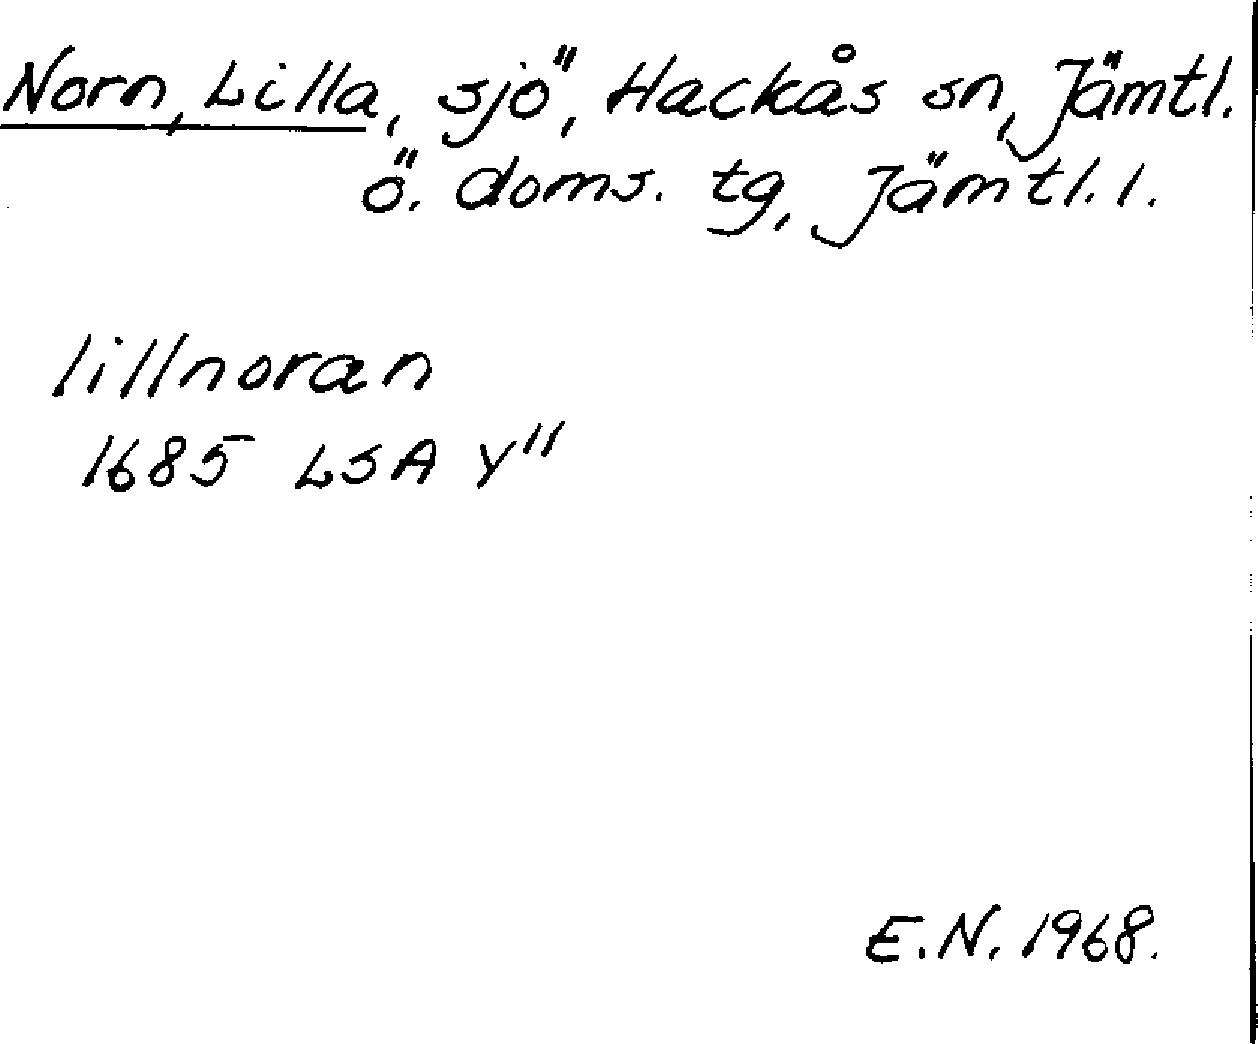 Norn, Lilla, sjö, Hackås sn, Jämtl.
ö. doms. tg, Jämtl. l.
lillnoran
1685 LSA Y"
E.N. 1968.